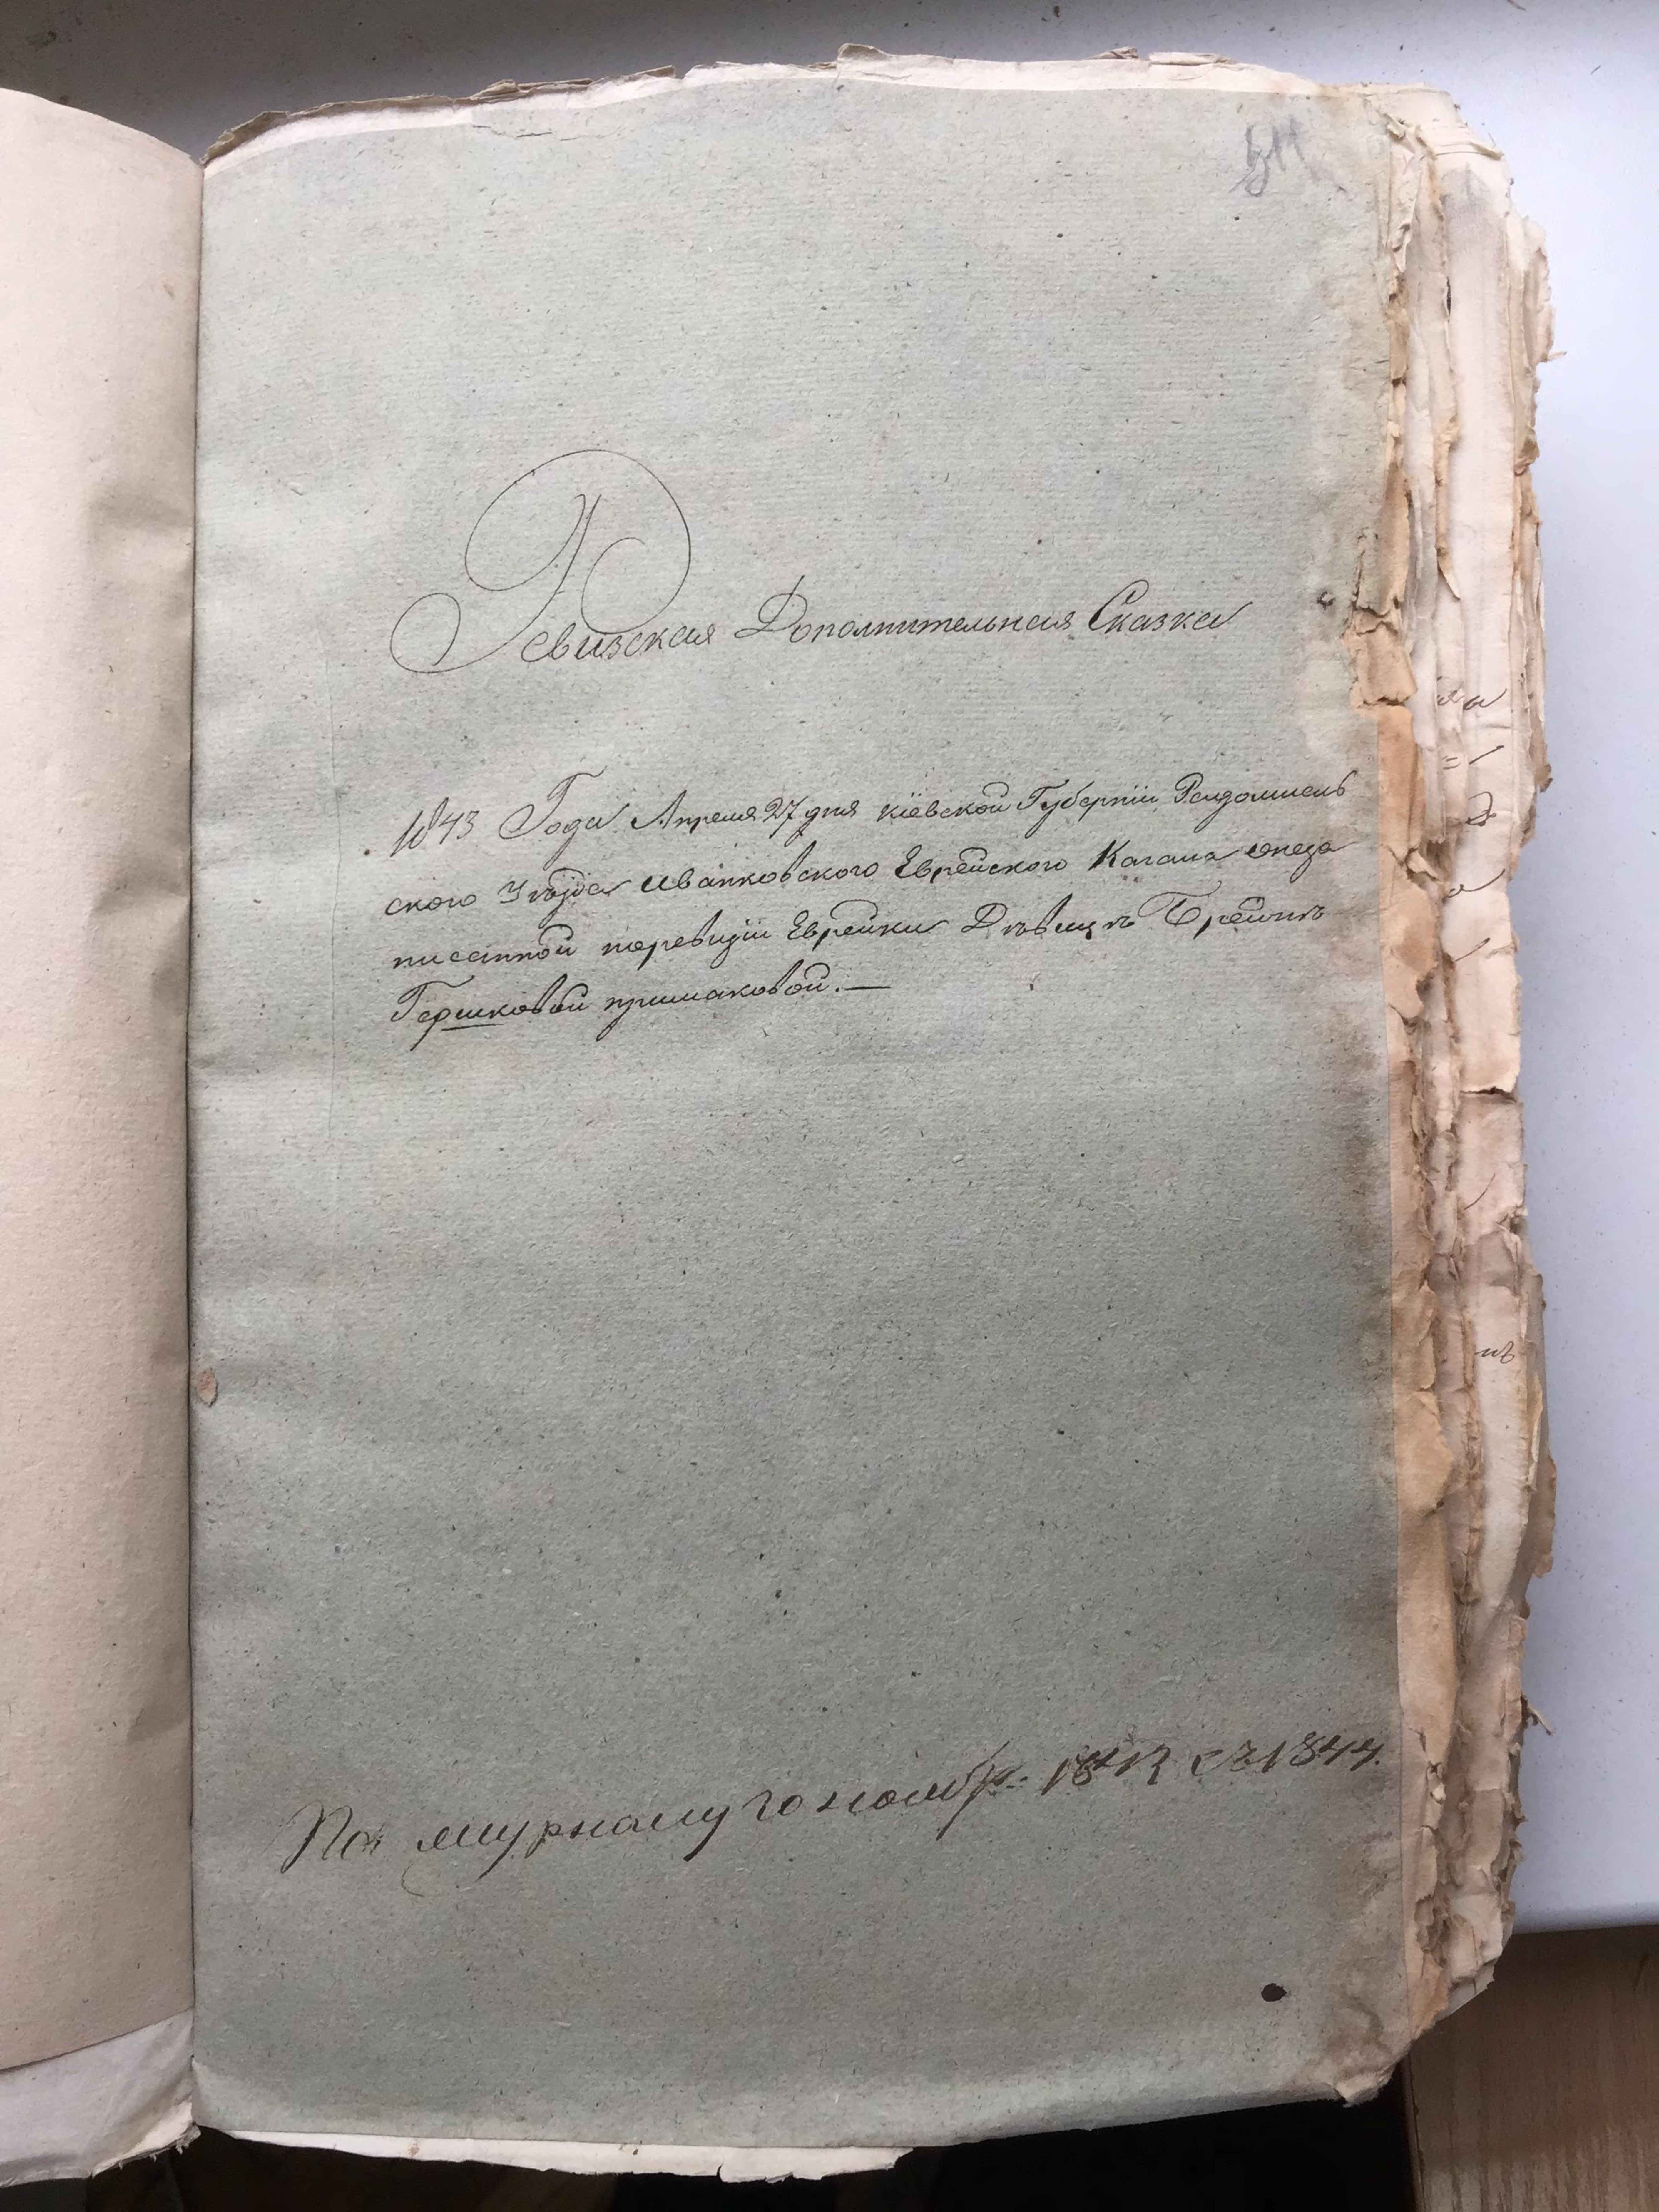 Ревизская Дополнительная Сказка
1843 Года Апреля 27 дня Кіевской Губерніи Радомысль
ского Уѣзда Иванковского Еврейского Кагала онеза
писанной поревизіи Еврейки Дѣвицѣ Брейнѣ
Гершковой примаковой.—
По журналу 10 ноябр: 1843 съ 1844.